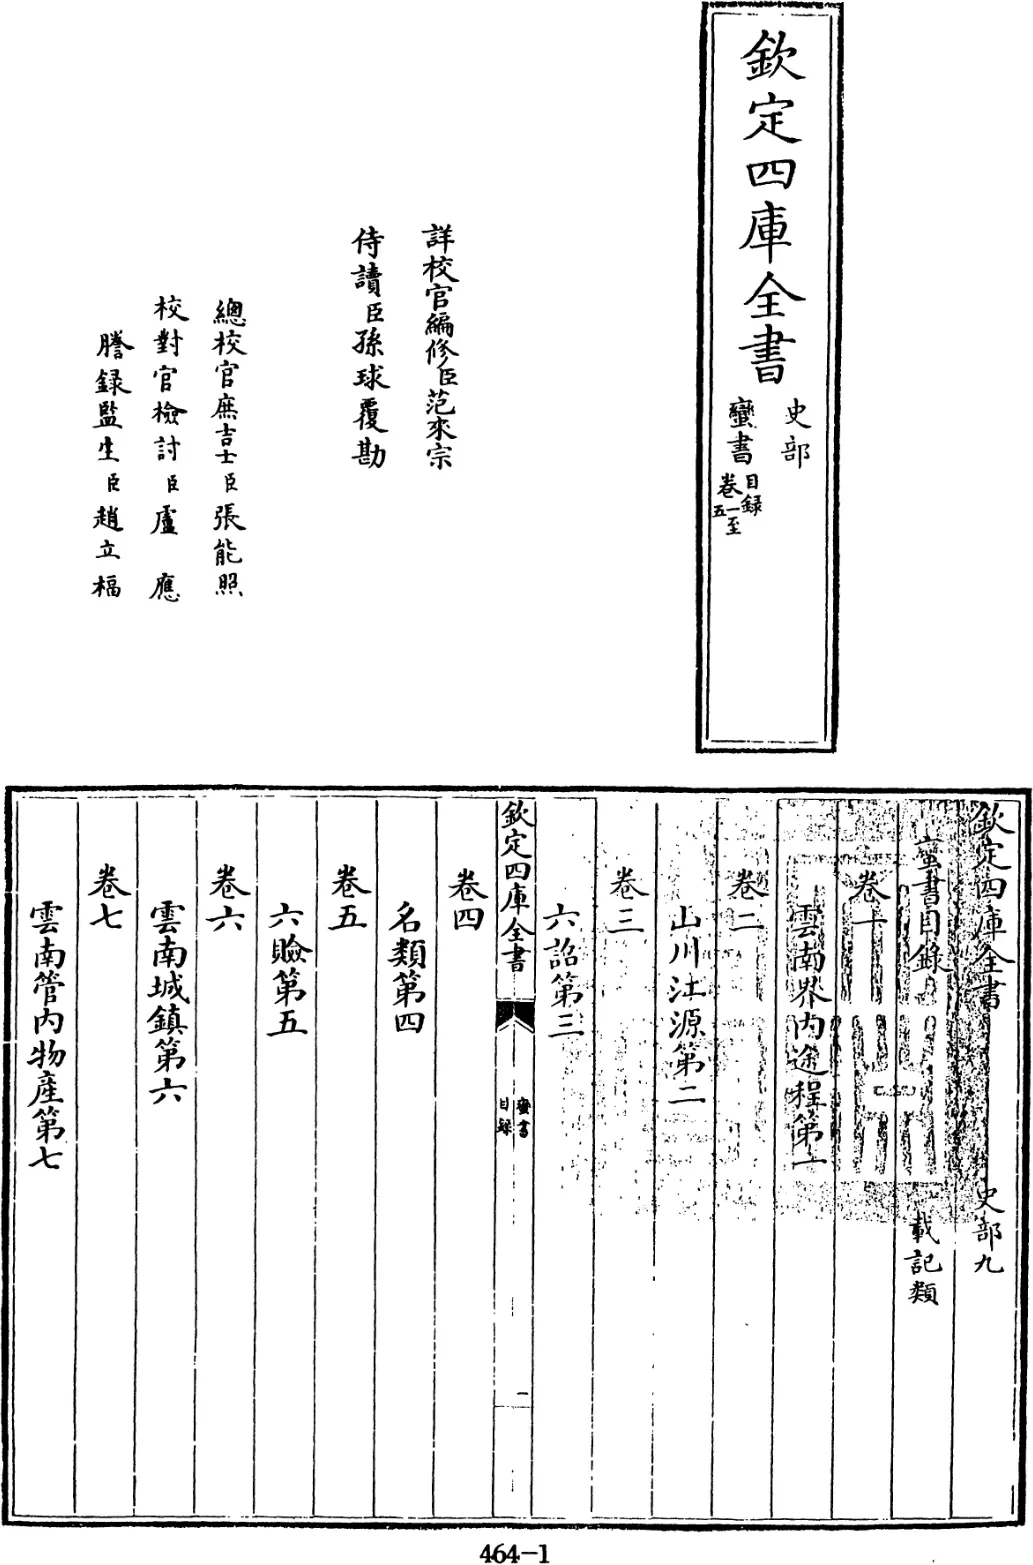 欽定四庫全書
史部
蠻書
目録
卷一至
五
詳校官編修臣范來宗
侍讀臣孫球覆勘
總校官庶吉士臣張能照
校對官檢討臣盧應
謄録監生臣趙立福
欽定四庫全書
史部九
蠻書目錄
載記類
卷一
雲南界内途程第一
卷二
山川江源第二
卷三
六詔第三
欽定四庫全書
蠻書
目録
一
卷四
名類第四
卷五
六瞼第五
卷六
雲南城鎮第六
卷七
雲南管内物產第七
464-1